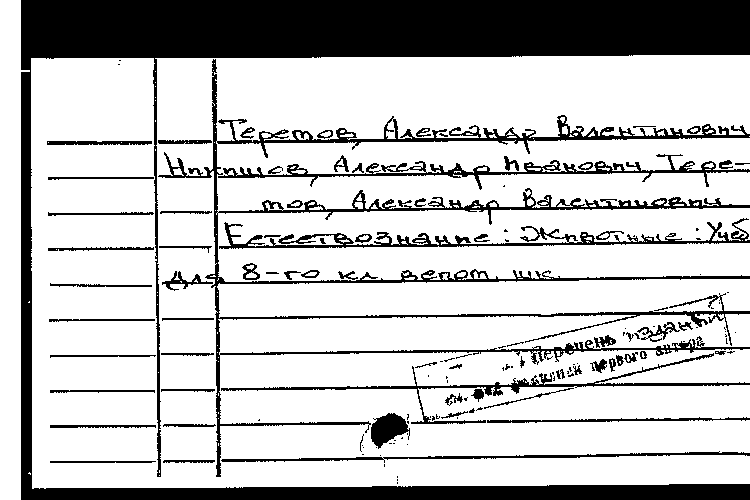 Теремов, Александр Валентинович
Никишов, Александр Иванович, Тере-
мов, Александр Валентинович
Естествознание : Животные : Учеб
для 8-го кл. вспом. шк.
Перечень изданий
см. под фамилией первого автора